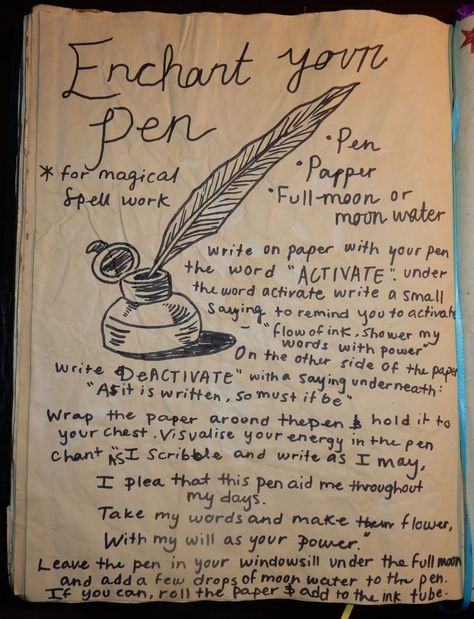 Enchant your
Pen
* for magical
Spell work
• Pen
• Papper
• Full moon or
moon water
write on paper with your pen
the word "ACTIVATE". under
the word activate write a small
saying to remind you to activate
- "flow of ink, shower my
words with power"
On the other side of the paper
write "DeACTIVATE" with a saying underneath:
"As it is written, so must it be"
Wrap the paper around the pen & hold it to
your chest. Visualise your energy in the pen
chant "AS I Scribble and write as I may,
I plea that this pen aid me throughout
my days.
Take my words and make them flower,
With my will as your power."
Leave the pen in your windowsill under the full moon
and add a few drops of moon water to the pen.
If you can, roll the paper & add to the ink tube.